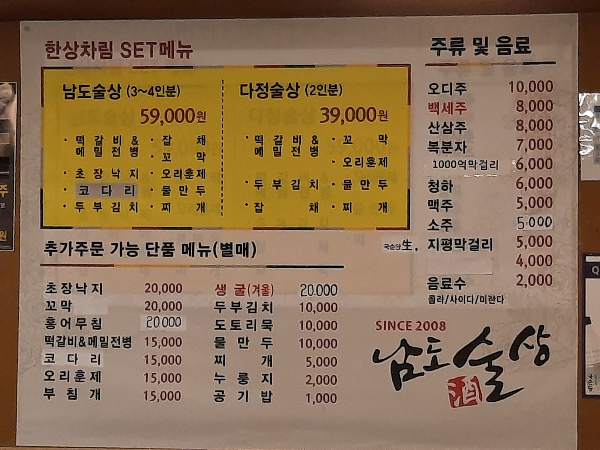 한상차림 SET메뉴
남도술상 (3~4인분)
59,000원
· 떡갈비&메밀전병 · 잡채
· 꼬막
· 초장낙지 · 오리훈제
· 코다리 · 물만두
· 두부김치 · 찌개
다정술상 (2인분)
39,000원
· 떡갈비&메밀전병 · 꼬막
· 오리훈제
· 두부김치 · 물만두
· 잡채 · 찌개
추가주문 가능 단품 메뉴(별매)
초장낙지 20,000
꼬막 20,000
홍어무침 20.000
떡갈비&메밀전병 15,000
코다리 15,000
오리훈제 15,000
부침개 15,000
생굴(겨울) 20.000
두부김치 10,000
도토리묵 10,000
물만두 10,000
찌개 5,000
누룽지 2,000
공기밥 1,000
주류 및 음료
오디주 10,000
백세주 8,000
산삼주 8,000
복분자 7,000
1000억막걸리 6,000
청하 6,000
맥주 5,000
소주 5.000
국순당生, 지평막걸리 5,000
4,000
음료수 2,000
콜라/사이다/미란다
SINCE 2008
남도술상
酒